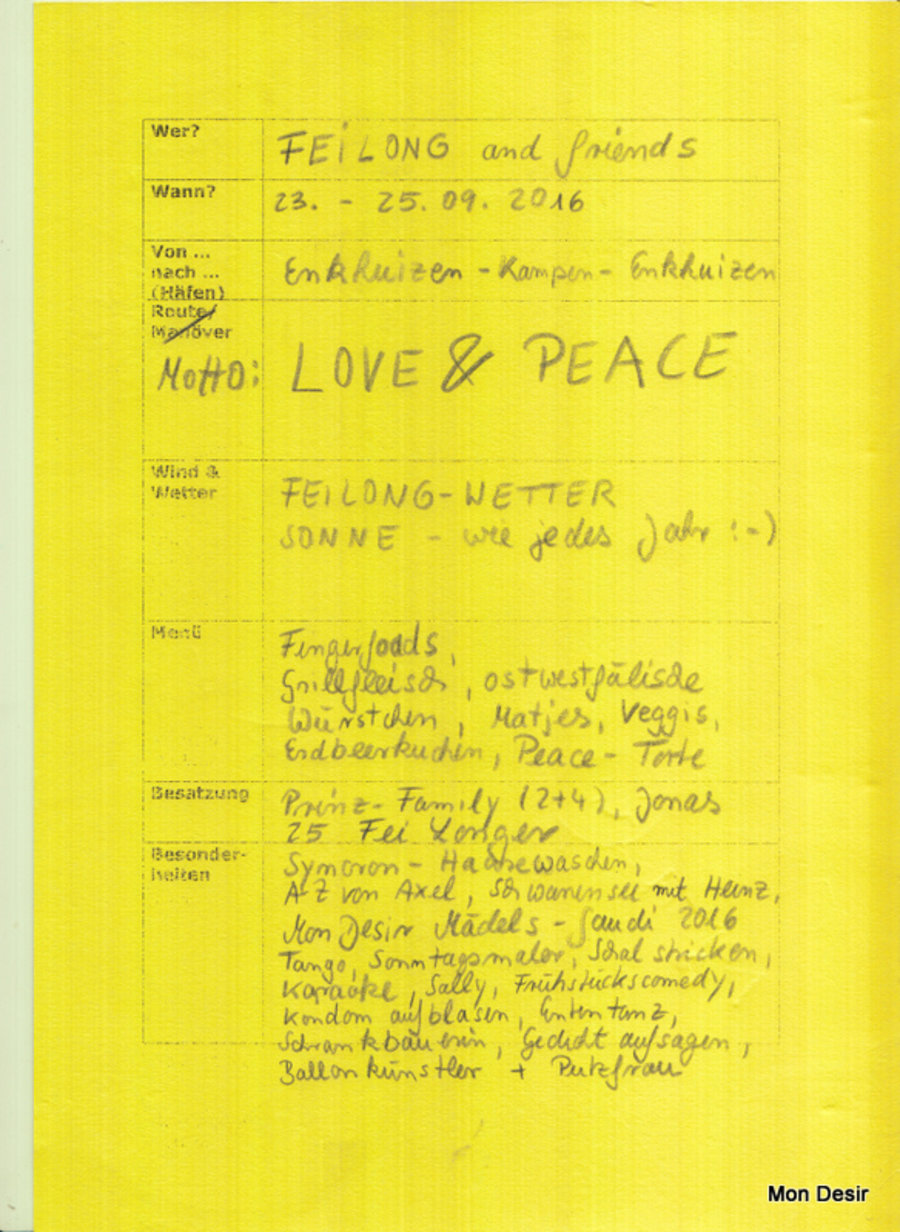 Wer?
FEiLONG and friends
Wann?
23. - 25. 09. 2016
Von ...
nach ...
(Häfen)
Enkhuizen - Kampen - Enkhuizen
Route/
Manöver
Motto:
LOVE & PEACE
Wind &
Wetter
FEILONG-WETTER
SONNE - wie jedes Jahr :-)
Menü
Fingerfoods,
Grillfleisch, ostwestfälische
Würstchen, Matjes, Veggis,
Erdbeerkuchen, Peace-Torte
Besatzung
Prinz-Family (2+4), Jonas
25 Fei Longer
Besonder-
heiten
Syncron - Haarewaschen,
A-Z von Axel, Schwanensee mit Heinz,
Mon Desir Mädels - Gaudi 2016
Tango, Sonntagsmaler, Schal stricken,
Karaoke, Sally, Frühstückscomedy,
Kondom aufblasen, Ententanz,
Schrankbäuerin, Gedicht aufsagen,
Ballonkünstler + Putzfrau
Mon Desir